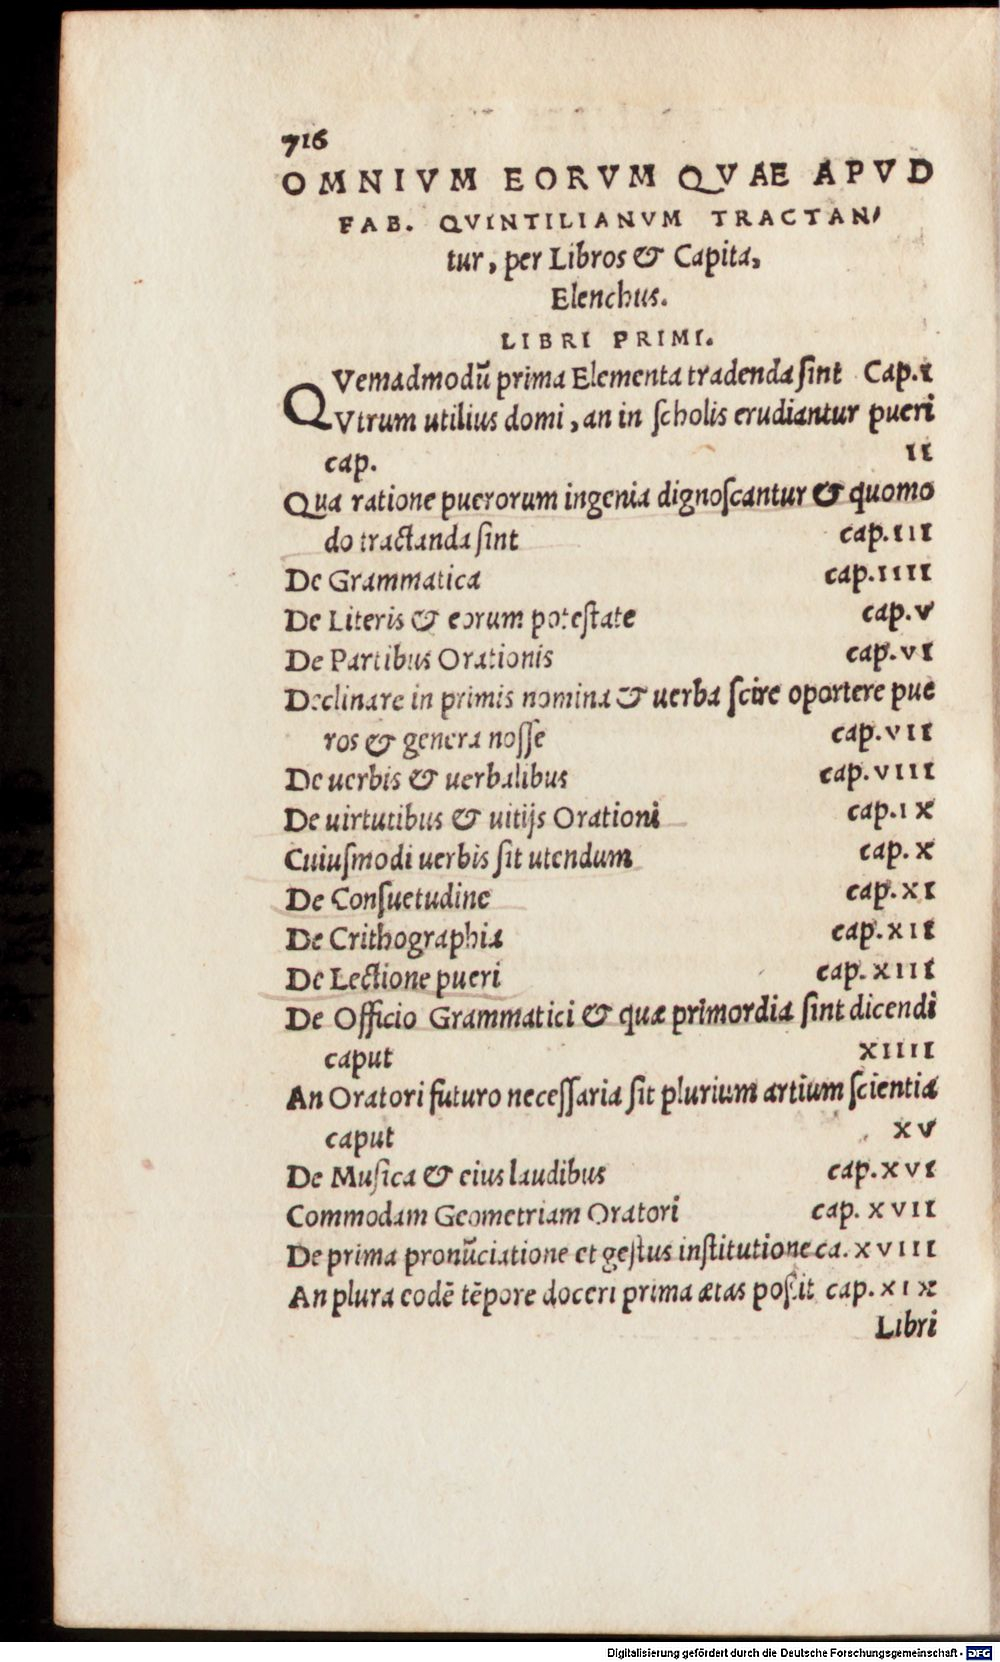 716
OMNIVM EORVM QVAE APVD
FAB. QVINTILIANVM TRACTAN-
tur, per Libros & Capita,
Elenchus.
LIBRI PRIMI.
QVemadmodū prima Elementa tradenda ſint Cap.I
Vtrum utilius domi, an in ſcholis erudiantur pueri
cap. II
Qua ratione puerorum ingenia dignoſcantur & quomo
do tractanda ſint cap.III
De Grammatica cap.IIII
De Literis & eorum poteſtate cap.V
De Partibus Orationis cap.VI
Declinare in primis nomina & uerba ſcire oportere pue
ros & genera noſſe cap.VII
De uerbis & uerbalibus cap.VIII
De uirtutibus & uitijs Orationi cap.IX
Cuiuſmodi uerbis ſit utendum cap. X
De Conſuetudine cap.XI
De Crithographia cap.XII
De Lectione pueri cap. XIII
De Officio Grammatici & quæ primordia ſint dicendi
caput XIIII
An Oratori futuro neceſſaria ſit plurium artium ſcientia
caput XV
De Muſica & eius laudibus cap.XVI
Commodam Geometriam Oratori cap. XVII
De prima pronūciatione et geſtus inſtitutione ca. XVIII
An plura eodē tēpore doceri prima ætas poſsit cap. XIX
Libri
Digitalisierung gefördert durch die Deutsche Forschungsgemeinschaft - DFG